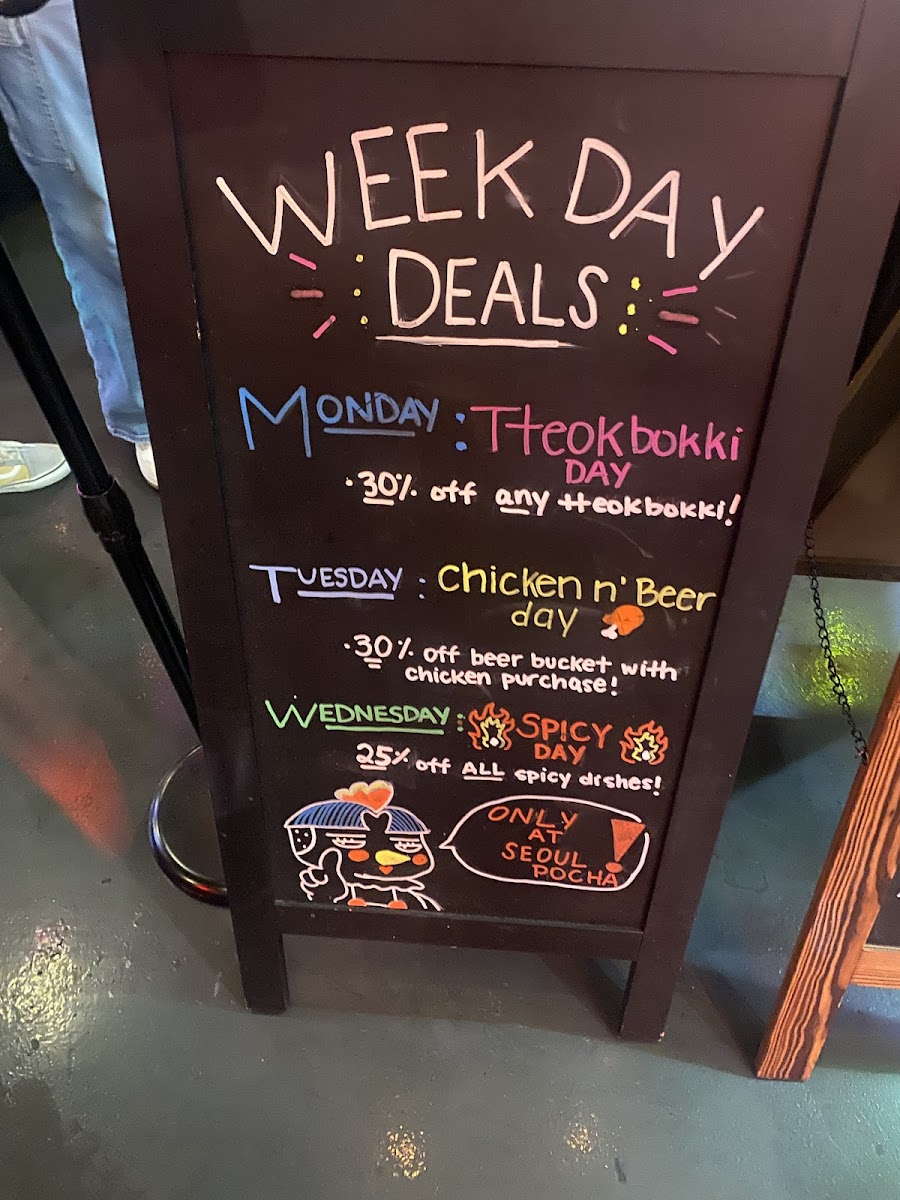 WEEK DAY
DEALS
MONDAY : Tteokbokki
DAY
• 30% off any tteokbokki!
TUESDAY : Chicken n' Beer
day
• 30% off beer bucket with
chicken purchase!
WEDNESDAY : SPICY
DAY
25% off ALL spicy dishes!
ONLY
AT
SEOUL
POCHA!